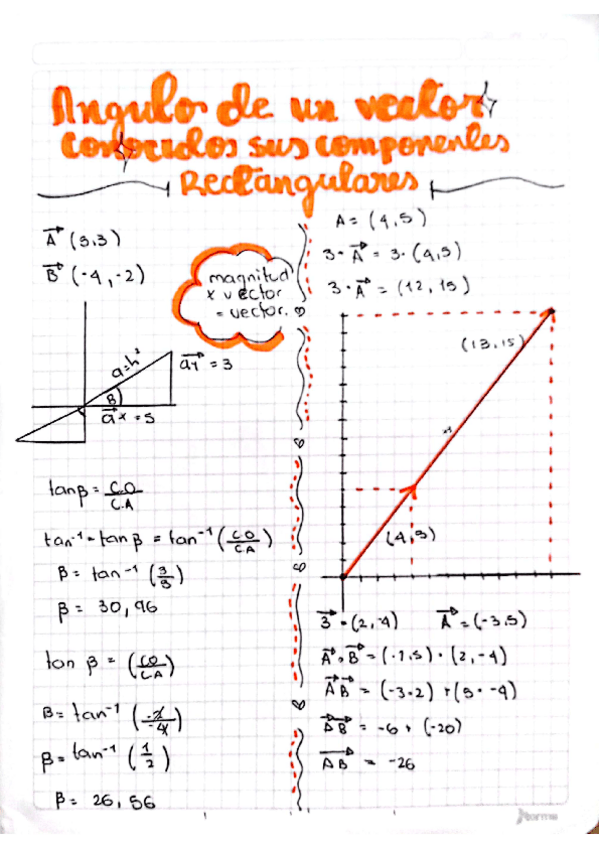 Angulo de un vector
conocidos sus componentes
Rectangulares
A (5,3)
B (-4,-2)
magnitud
x vector
= vector.
a=h²
ay = 3
B
ax = 5
tanβ = C.O
C.A
tan⁻¹ = tan β = tan⁻¹ (CO
CA)
β = tan⁻¹ (3
5)
β = 30,96
tan β = (CO
CA)
B = tan⁻¹ (-2
-4)
β = tan⁻¹ (1
2)
β = 26,56
A = (4,5)
3 · A = 3 · (4,5)
3 · A = (12,15)
(13,15)
(4,5)
B = (2,-4) A = (-3,5)
A · B = (-3,5) · (2,-4)
AB = (-3·2) + (5·-4)
AB = -6 + (-20)
AB = -26
norma